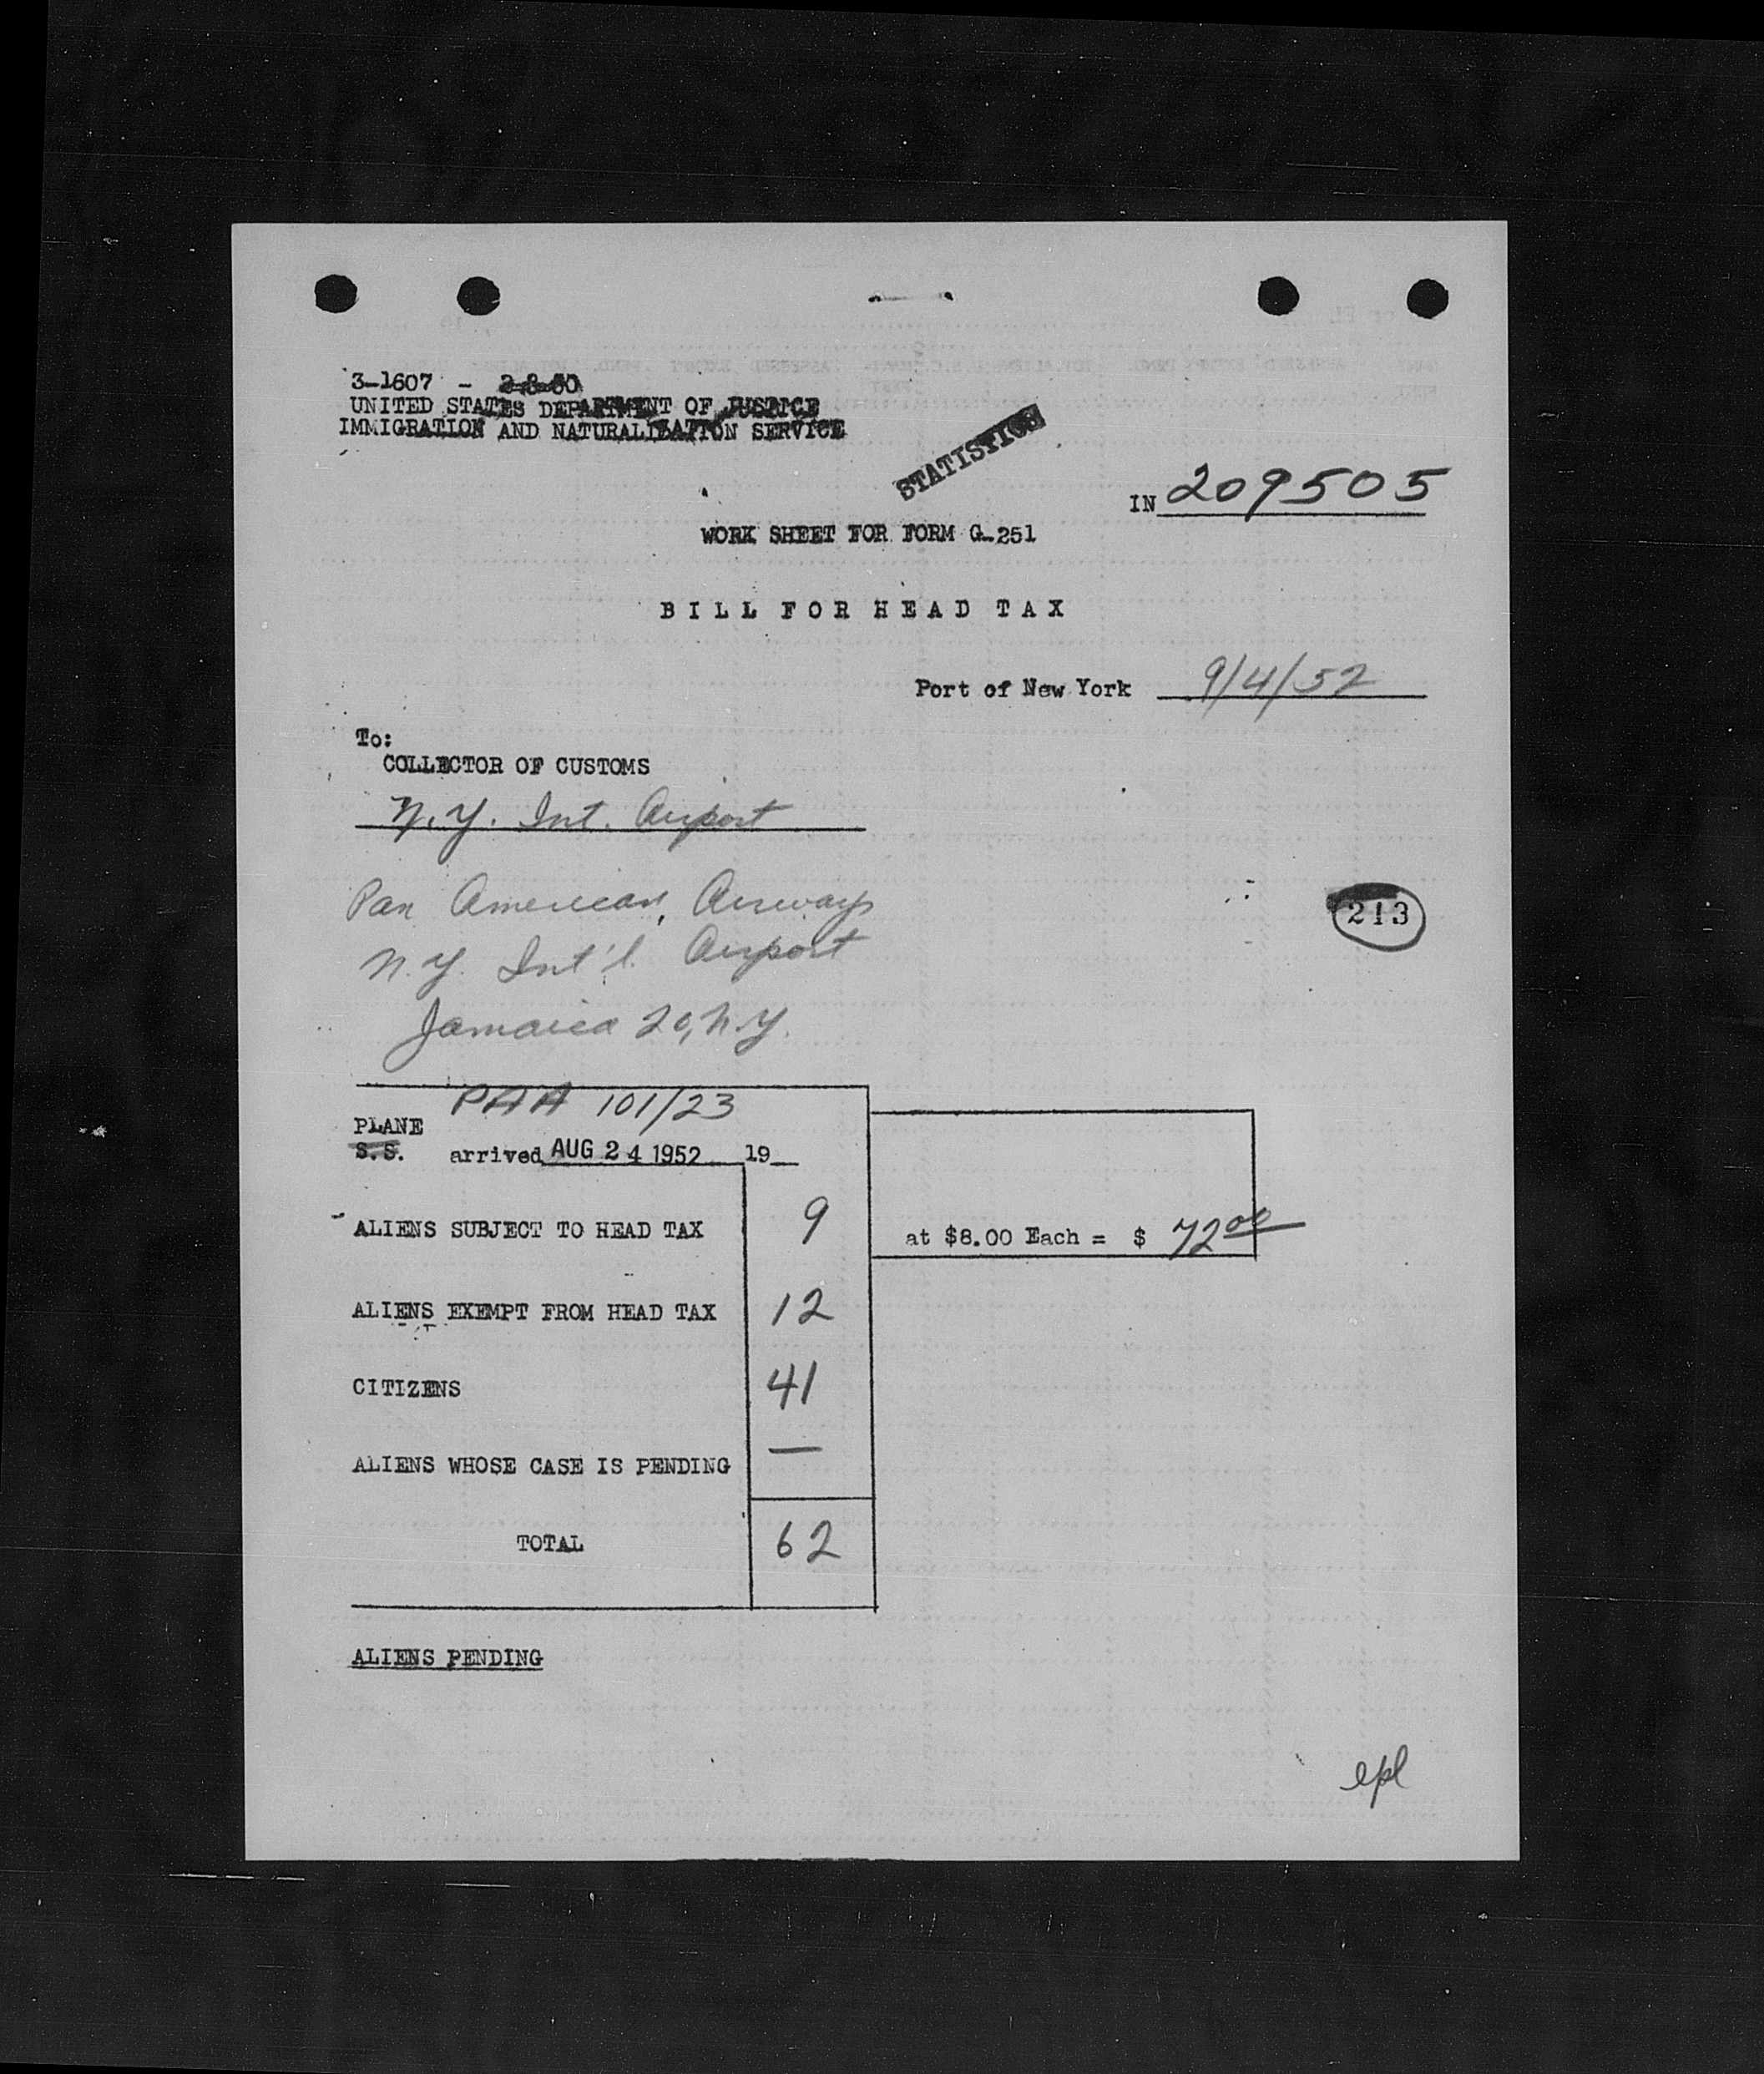 3-1607 - 2-8-50
UNITED STATES DEPARTMENT OF JUSTICE
IMMIGRATION AND NATURALIZATION SERVICE
STATISTICS
IN 209505
WORK SHEET FOR FORM G-251
BILL FOR HEAD TAX
Port of New York 9/4/52
To:
COLLECTOR OF CUSTOMS
N.Y. Int. Airport
Pan American Airways
N.Y. Int'l. Airport
Jamaica 20, N.Y.
213
PAA 101/23
PLANE
S.S. arrived AUG 24 1952 19
ALIENS SUBJECT TO HEAD TAX 9 at $8.00 Each = $ 72 00
ALIENS EXEMPT FROM HEAD TAX 12
CITIZENS 41
ALIENS WHOSE CASE IS PENDING —
TOTAL 62
ALIENS PENDING
epl